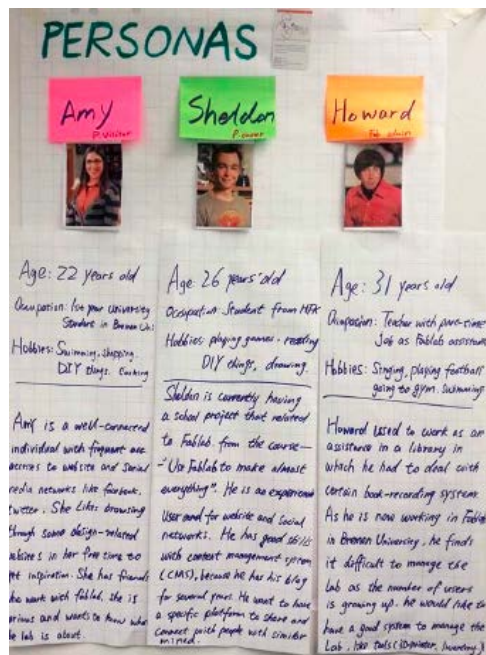 PERSONAS
Amy
P. Visitor
Sheldon
P. owner
Howard
Fab admin
Age: 22 years old
Occupation: 1st year University
Student in Bremen Uni
Hobbies: Swimming, shopping,
DIY things, Cooking
Amy is a well-connected
individual with frequent
access to website and Social
media networks like facebook,
twitter. She Likes browsing
through some design-related
websites in her free time to
get inspiration. She has friends
who work with fablab, she is
curious and wants to know what
the lab is about.
Age: 26 years old
Occupation: Student from HFK
Hobbies: playing games, reading
DIY things, drawing.
Sheldon is currently having
a school project that related
to Fablab from the course-
-"Use Fablab to make almost
everything". He is an experienced
User and for website and social
networks. He has good skills
with content management system
(CMS), because he has his blog
for several years. He want to have
a specific platform to share and
connect with people with similar
mined.
Age: 31 years old
Occupation: Teacher with part-time
Job as Fablab assistant
Hobbies: Singing, playing football
going to gym, swimming
Howard used to work as an
assistance in a library in
which he had to deal with
certain book-recording system.
As he is now working in Fablab
in Bremen University, he finds
it difficult to manage the
Lab as the number of users
is growing up. he would like to
have a good system to manage the
Lab, like tools (3D-printer, Inventory)